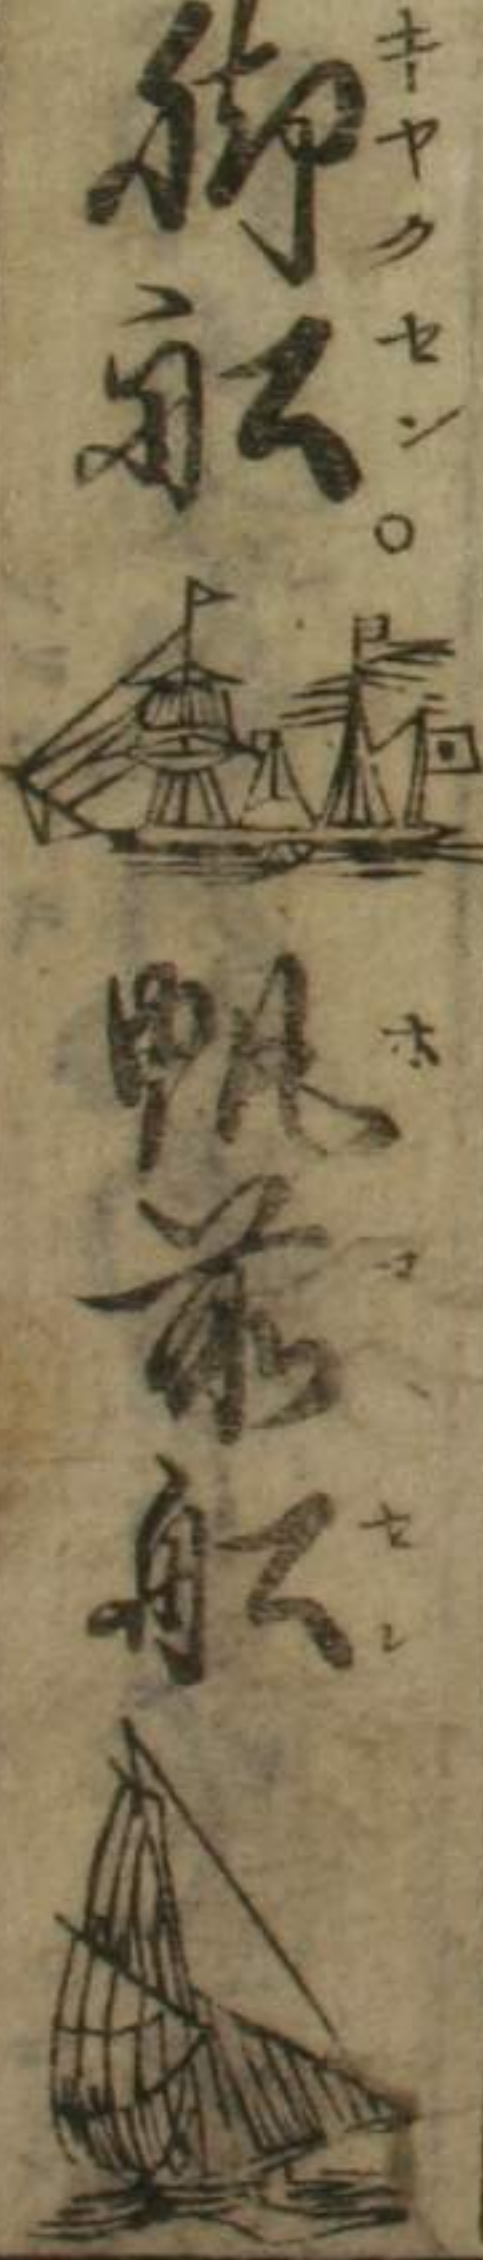 キヤクセン○
脚舩
ホマヘセン
帆前舩